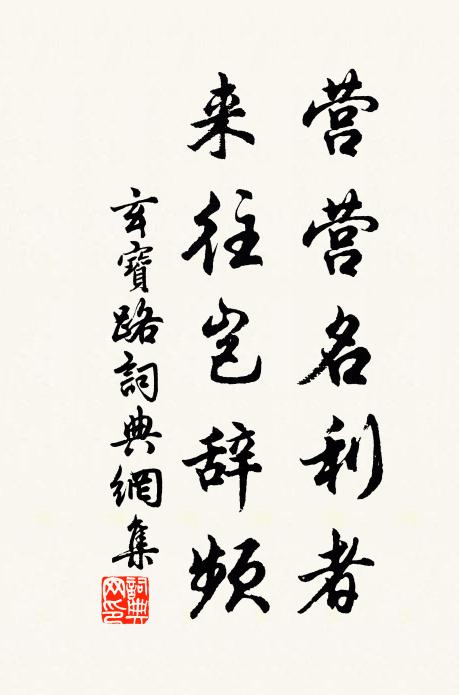 营营名利者
来往岂辞频
玄寶路詞典網集
詞典网印